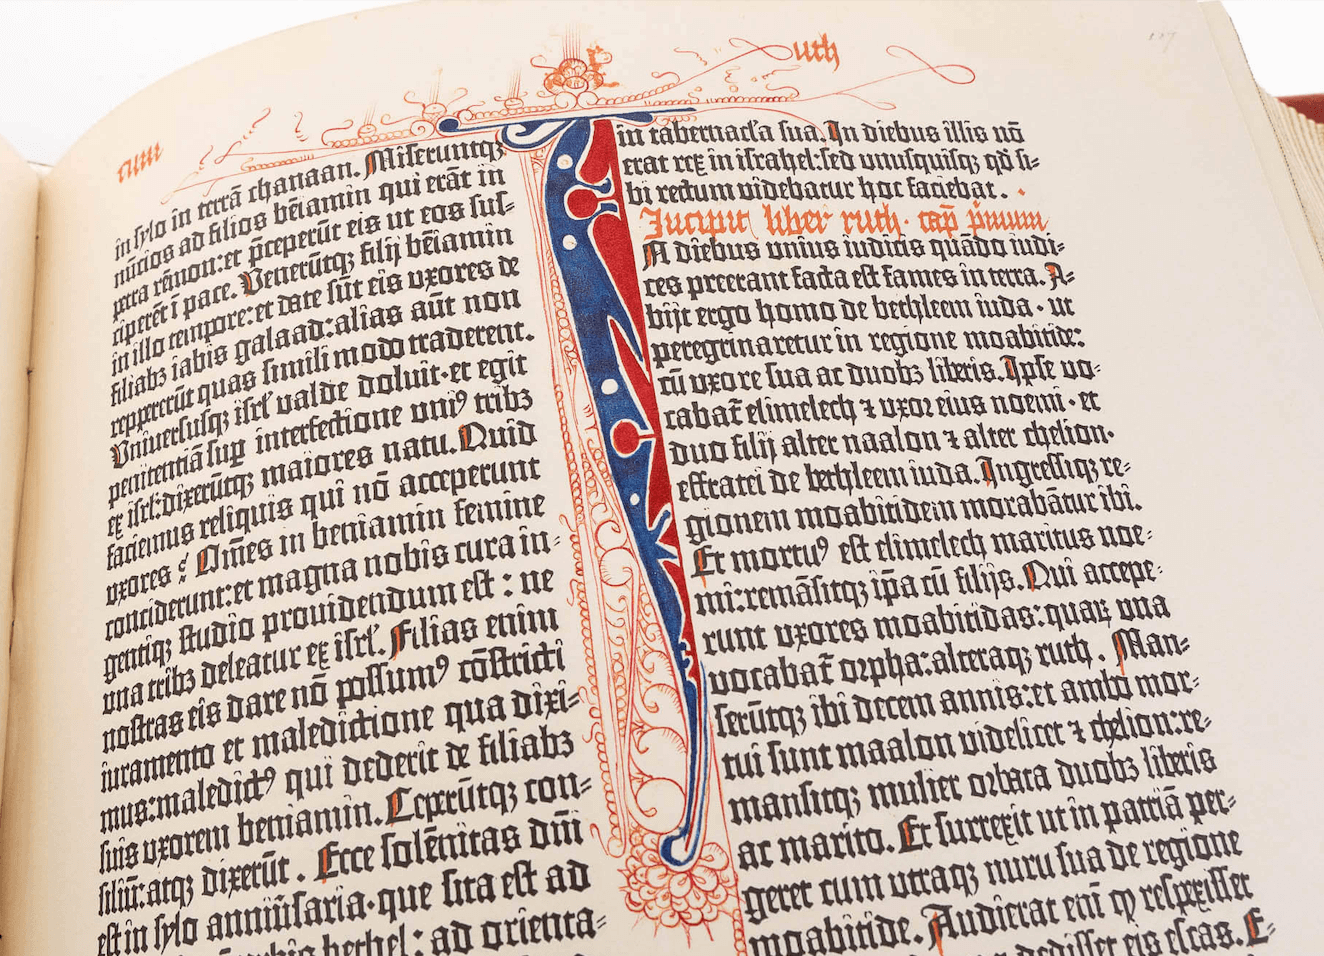 cum
uth
in sylo in terrā chanaan. Miseruntqꝫ
nūcios ad filios bēiamin qui erāt in
petra rēnon: et p̄ceperūt eis ut eos sus=
ciperēt ī pace. Venerūtqꝫ filij bēiamin
in illo tempore: et date sūt eis uxores de
filiabꝫ iabis galaad: alias aūt non
reppererūt quas simili modo traderent.
Vniuersusqꝫ isrl' ualde doluit · et egit
penitentiā sup̄ interfectione uniꝰ tribꝫ
ex isrl': dixerūtqꝫ maiores natu. Quid
faciemus reliquis qui nō acceperunt
uxores? Om̄es in beniamin femine
conciderunt: et magna nobis cura in=
gentiqꝫ studio prouidendum est: ne
una tribꝫ deleatur ex isrl'. Filias enim
nostras eis dare nō possumꝰ cōstricti
iuramento et maledictione qua dixi=
mus: maledictꝰ qui dederit de filiabꝫ
suis uxorem beniamin. Ceperūtqꝫ con=
siliū: atqꝫ dixerūt. Ecce solēnitas dn̄i
est in sylo anniūsaria · que sita est ad
bethel: ad orienta=
in tabernacl'a sua. In diebus illis nō
erat rex in israhel: sed unusquisqꝫ qd̄ si=
bi rectum uidebatur hoc faciebat.
Incipit liber ruth · cap̄ p̄mum
IN diebus unius iudicis quādo iudi=
ces preerant facta est fames in terra. A=
bijt ergo homo de bethleem iuda · ut
peregrinaretur in regione moabitide:
cū uxore sua ac duobꝫ liberis. Ipse uo=
cabat̄ elimelech ⁊ uxor eius noemi · et
duo filij alter naalon ⁊ alter chelion ·
effratei de bethleem iuda. Ingressiqꝫ re=
gionem moabitidem morabātur ibi.
Et mortuꝰ est elimelech maritus noe=
mi: remāsitqꝫ ip̄a cū filijs. Qui accepe=
runt uxores moabitidas: quaꝝ una
vocabat̄ orpha: alteraqꝫ ruth. Man=
serūtqꝫ ibi decem annis: et ambo mor=
tui sunt maalon uidelicet ⁊ chelion: re=
mansitqꝫ mulier orbata duobꝫ liberis
ac marito. Et surrexit ut in patriā per=
geret cum utraqꝫ nuru sua de regione
moabitide. Audierat eni̅ ꝙ respexisset
dedisset eis escas. E=